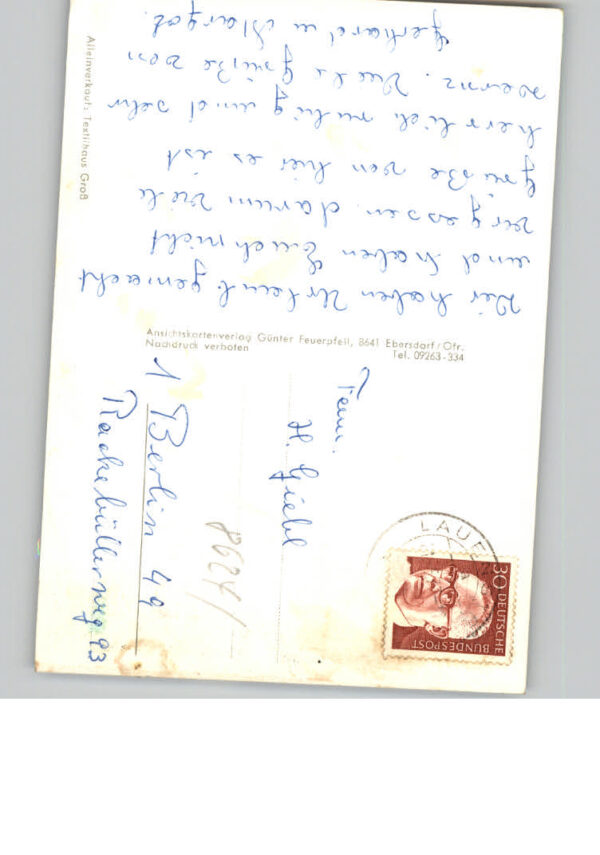 Wir haben Urlaub gemacht
und haben Euch nicht
vergessen. darum viele
Grüße von hier es ist
herrlich ruhig und sehr
warm. Viele Grüße von
Gerhard u Margot.
Alleinverkauf: Textilhaus Groß
Ansichtskartenverlag Günter Feuerpfeil, 8641 Ebersdorf/Ofr.
Nachdruck verboten Tel. 09263-334
Fam.
H. Giebl
1 Berlin 49
Rackebüllerweg 93
8624/
LAUEN
30 DEUTSCHE
BUNDESPOST